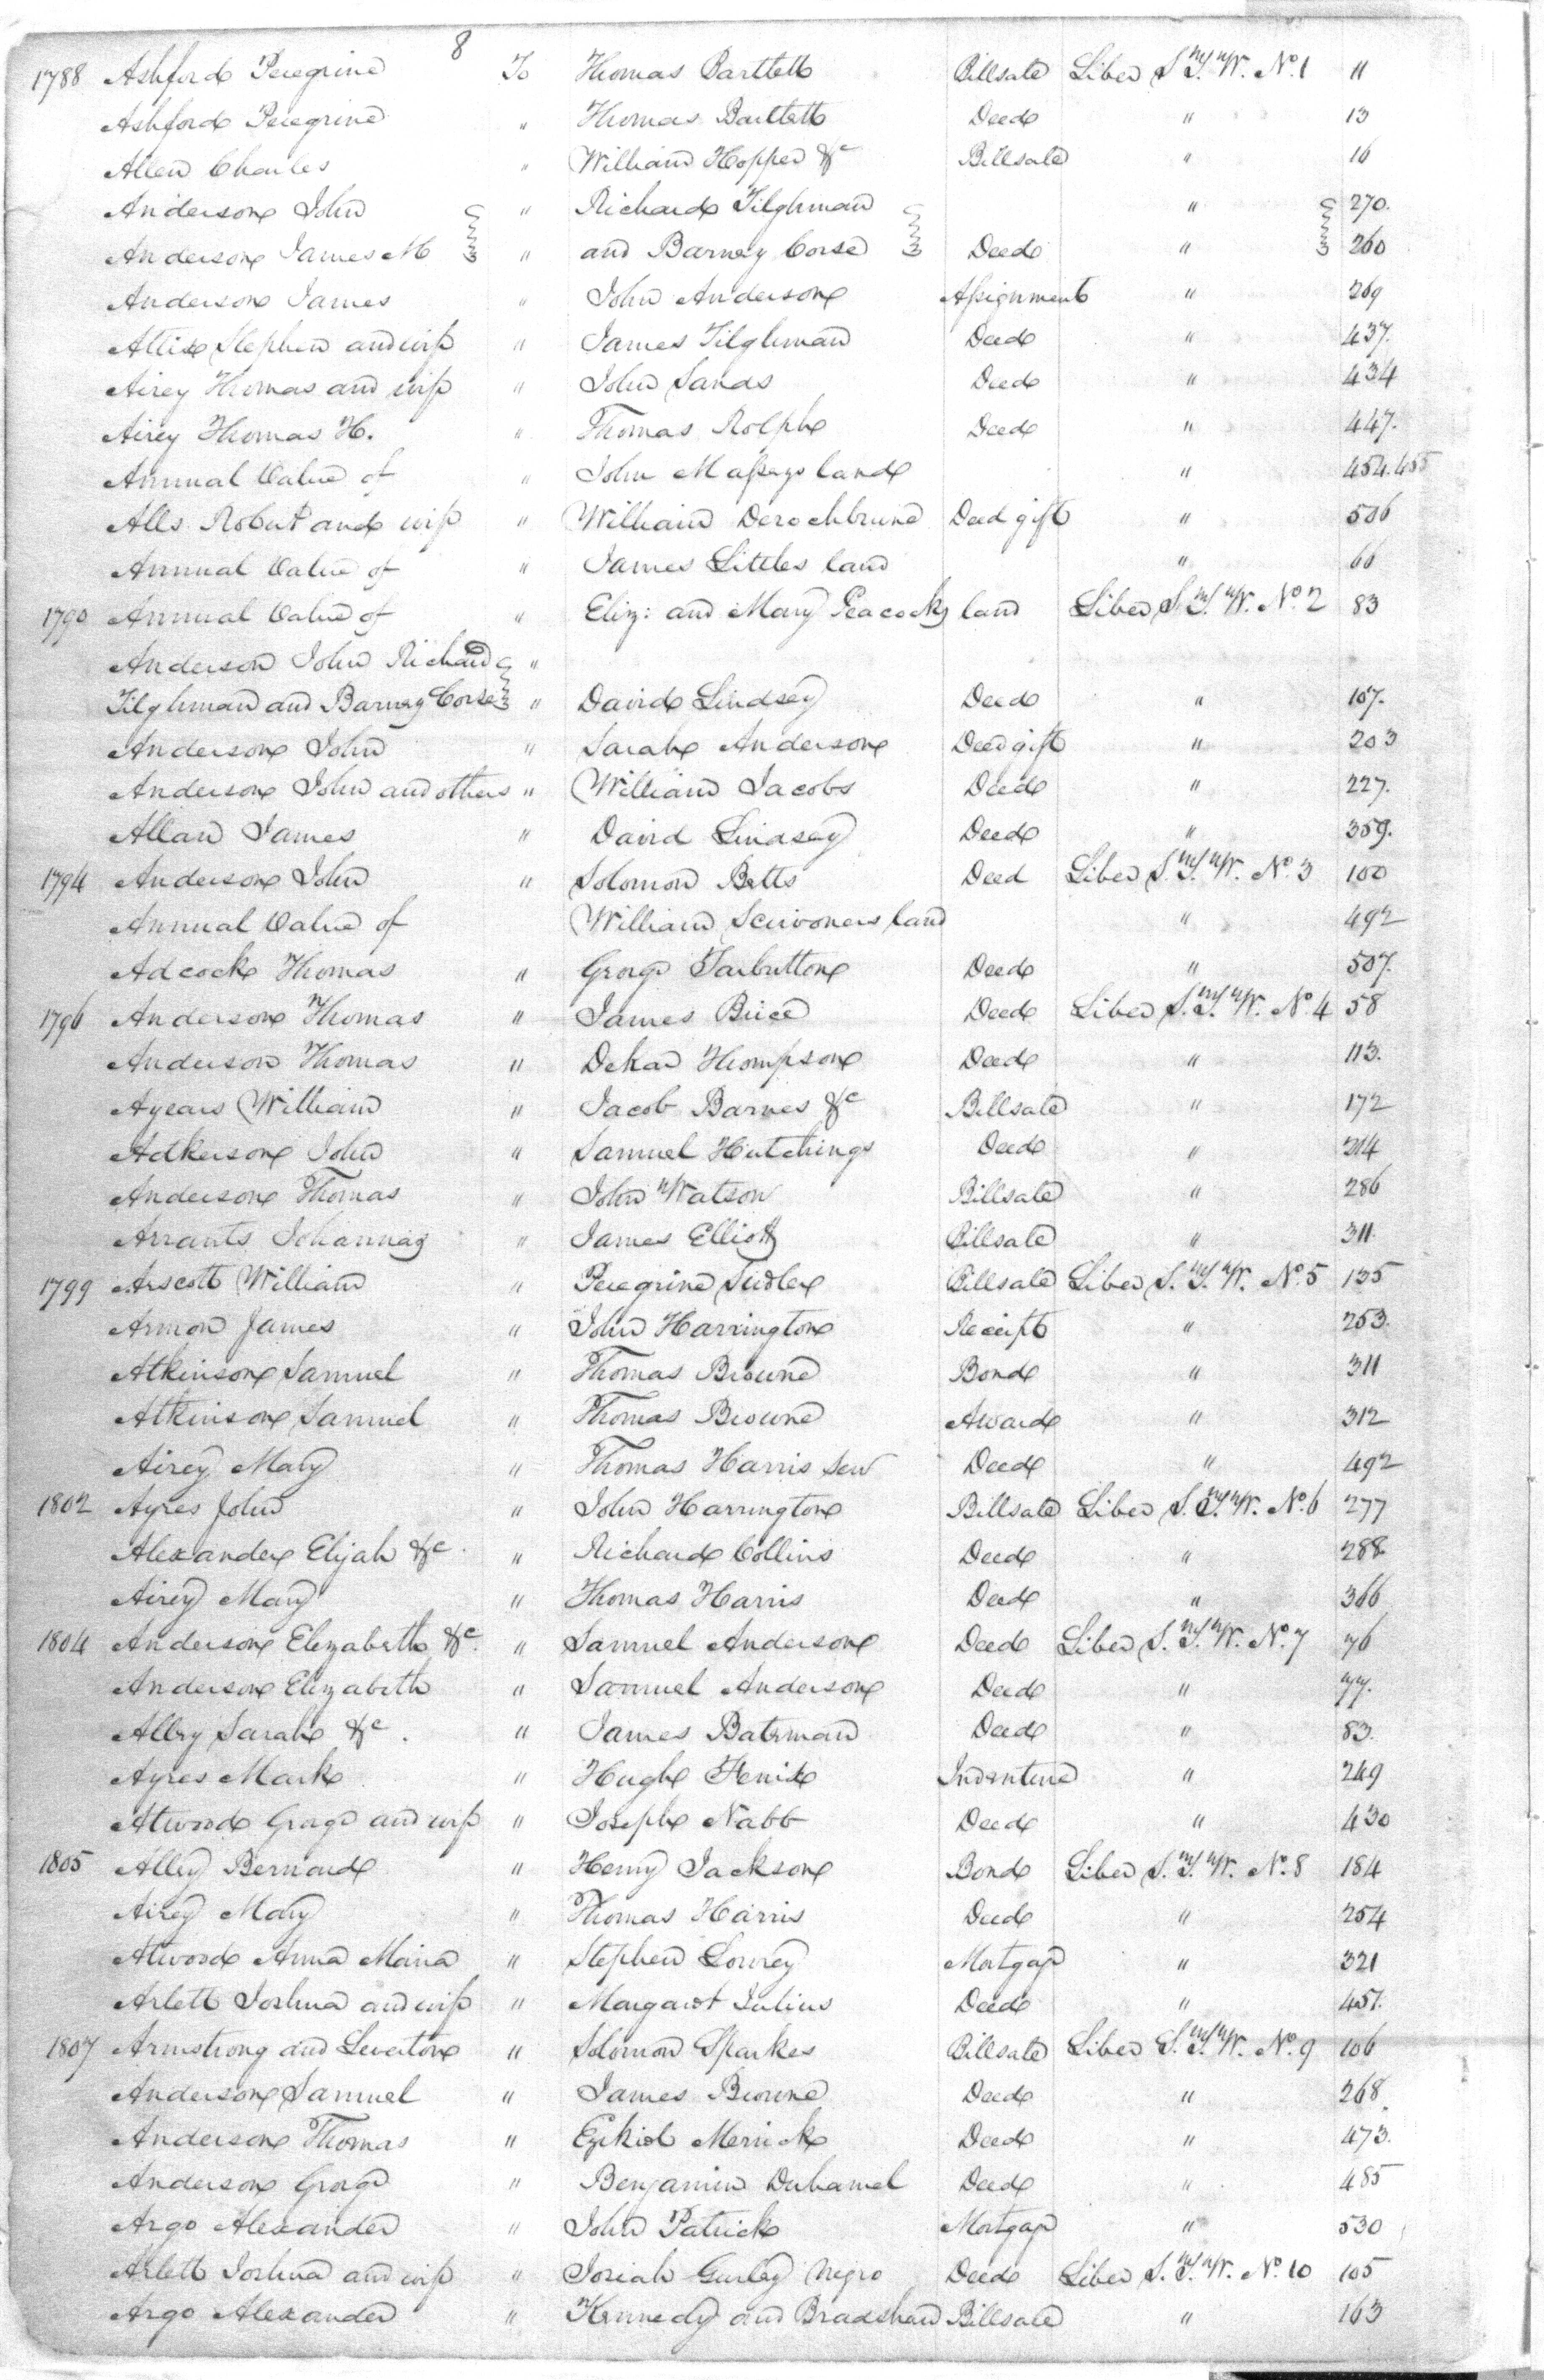 8
1788 Ashford Peregrine To Thomas Bartlett Billsale Liber S.T.W. No. 1 11
Ashford Peregrine " Thomas Bartlett Deed " 13
Allen Charles " William Hopper &c Billsale " 16
Anderson John " Richard Tilghman " 270.
Anderson James M " and Barney Corse Deed " 260
Anderson James " John Anderson Assignment " 269
Attix Stephen and wife " James Tilghman Deed " 437.
Airey Thomas and wife " John Sands Deed " 434
Airey Thomas H. " Thomas Rolph Deed " 447.
Annual Value of " John Masseys land " 454.455
Alls Robert and wife " William Derochbrune Deed gift " 506
Annual Value of " James Littles land " 66
1790 Annual Value of " Eliz: and Mary Peacocks land Liber S.T.W. No. 2 83
Anderson John Richard "
Tilghman and Barney Corse " David Lindsey Deed " 107.
Anderson John " Sarah Anderson Deed gift " 203
Anderson John and others " William Jacobs Deed " 227.
Allan James " David Lindsey Deed " 359.
1794 Anderson John " Solomon Betts Deed Liber S.T.W. No. 3 100
Annual Value of William Scrivoners land " 492
Adcock Thomas " George Tarbutton Deed " 507.
1796 Anderson Thomas " James Brice Deed Liber S.T.W. No. 4 58
Anderson Thomas " Dekar Thompson Deed " 113.
Ayears William " Jacob Barnes &c Billsale " 172
Adkerson John " Samuel Hutchings Deed "
Anderson Thomas " John Watson Billsale " 286
Arrants Johannas " James Elliott Billsale " 311.
1799 Arscott William " Peregrine Billsale Liber S.T.W. No. 5 135
Armon James " John Harrington Receipt " 253.
Atkinson Samuel " Thomas Browne Bond " 311
Atkinson Samuel " Thomas Browne Award " 312
Airey Mary " Thomas Harris Sen Deed " 492
1802 Ayres John " John Harrington Billsale Liber S.T.W. No. 6 277
Alexander Elijah &c. " Richard Collins Deed " 288
Airey Mary " Thomas Harris Deed " 366
1804 Anderson Elizabeth &c. " Samuel Anderson Deed Liber S.T.W. No. 7 76
Anderson Elizabeth " Samuel Anderson Deed " 77.
Alley Sarah &c. " James Bateman Deed " 83.
Ayres Mark " Hugh Fenix Indenture " 249
Atwood George and wife " Joseph Nabb Deed " 430
1805 Alley Bernard " Henry Jackson Bond Liber S.T.W. No. 8 184
Airey Mary " Thomas Harris Deed " 254
Atwood Anna Maria " Stephen Lowrey Mortgage " 321
Arlett Joshua and wife " Margaret Julius Deed " 451.
1807 Armstrong and Leverton " Solomon Sparkes Billsale Liber S.T.W. No. 9 106
Anderson Samuel " James Browne Deed " 268.
Anderson Thomas " Ezekiel Merrick Deed " 473.
Anderson George " Benjamin Duhamel Deed " 485
Argo Alexander " John Patrick Mortgage " 530
Arlett Joshua and wife " Josiah Gurley Negro Deed Liber S.T.W. No. 10 105
Argo Alexander " Kennedy and Bradshaw Billsale " 163